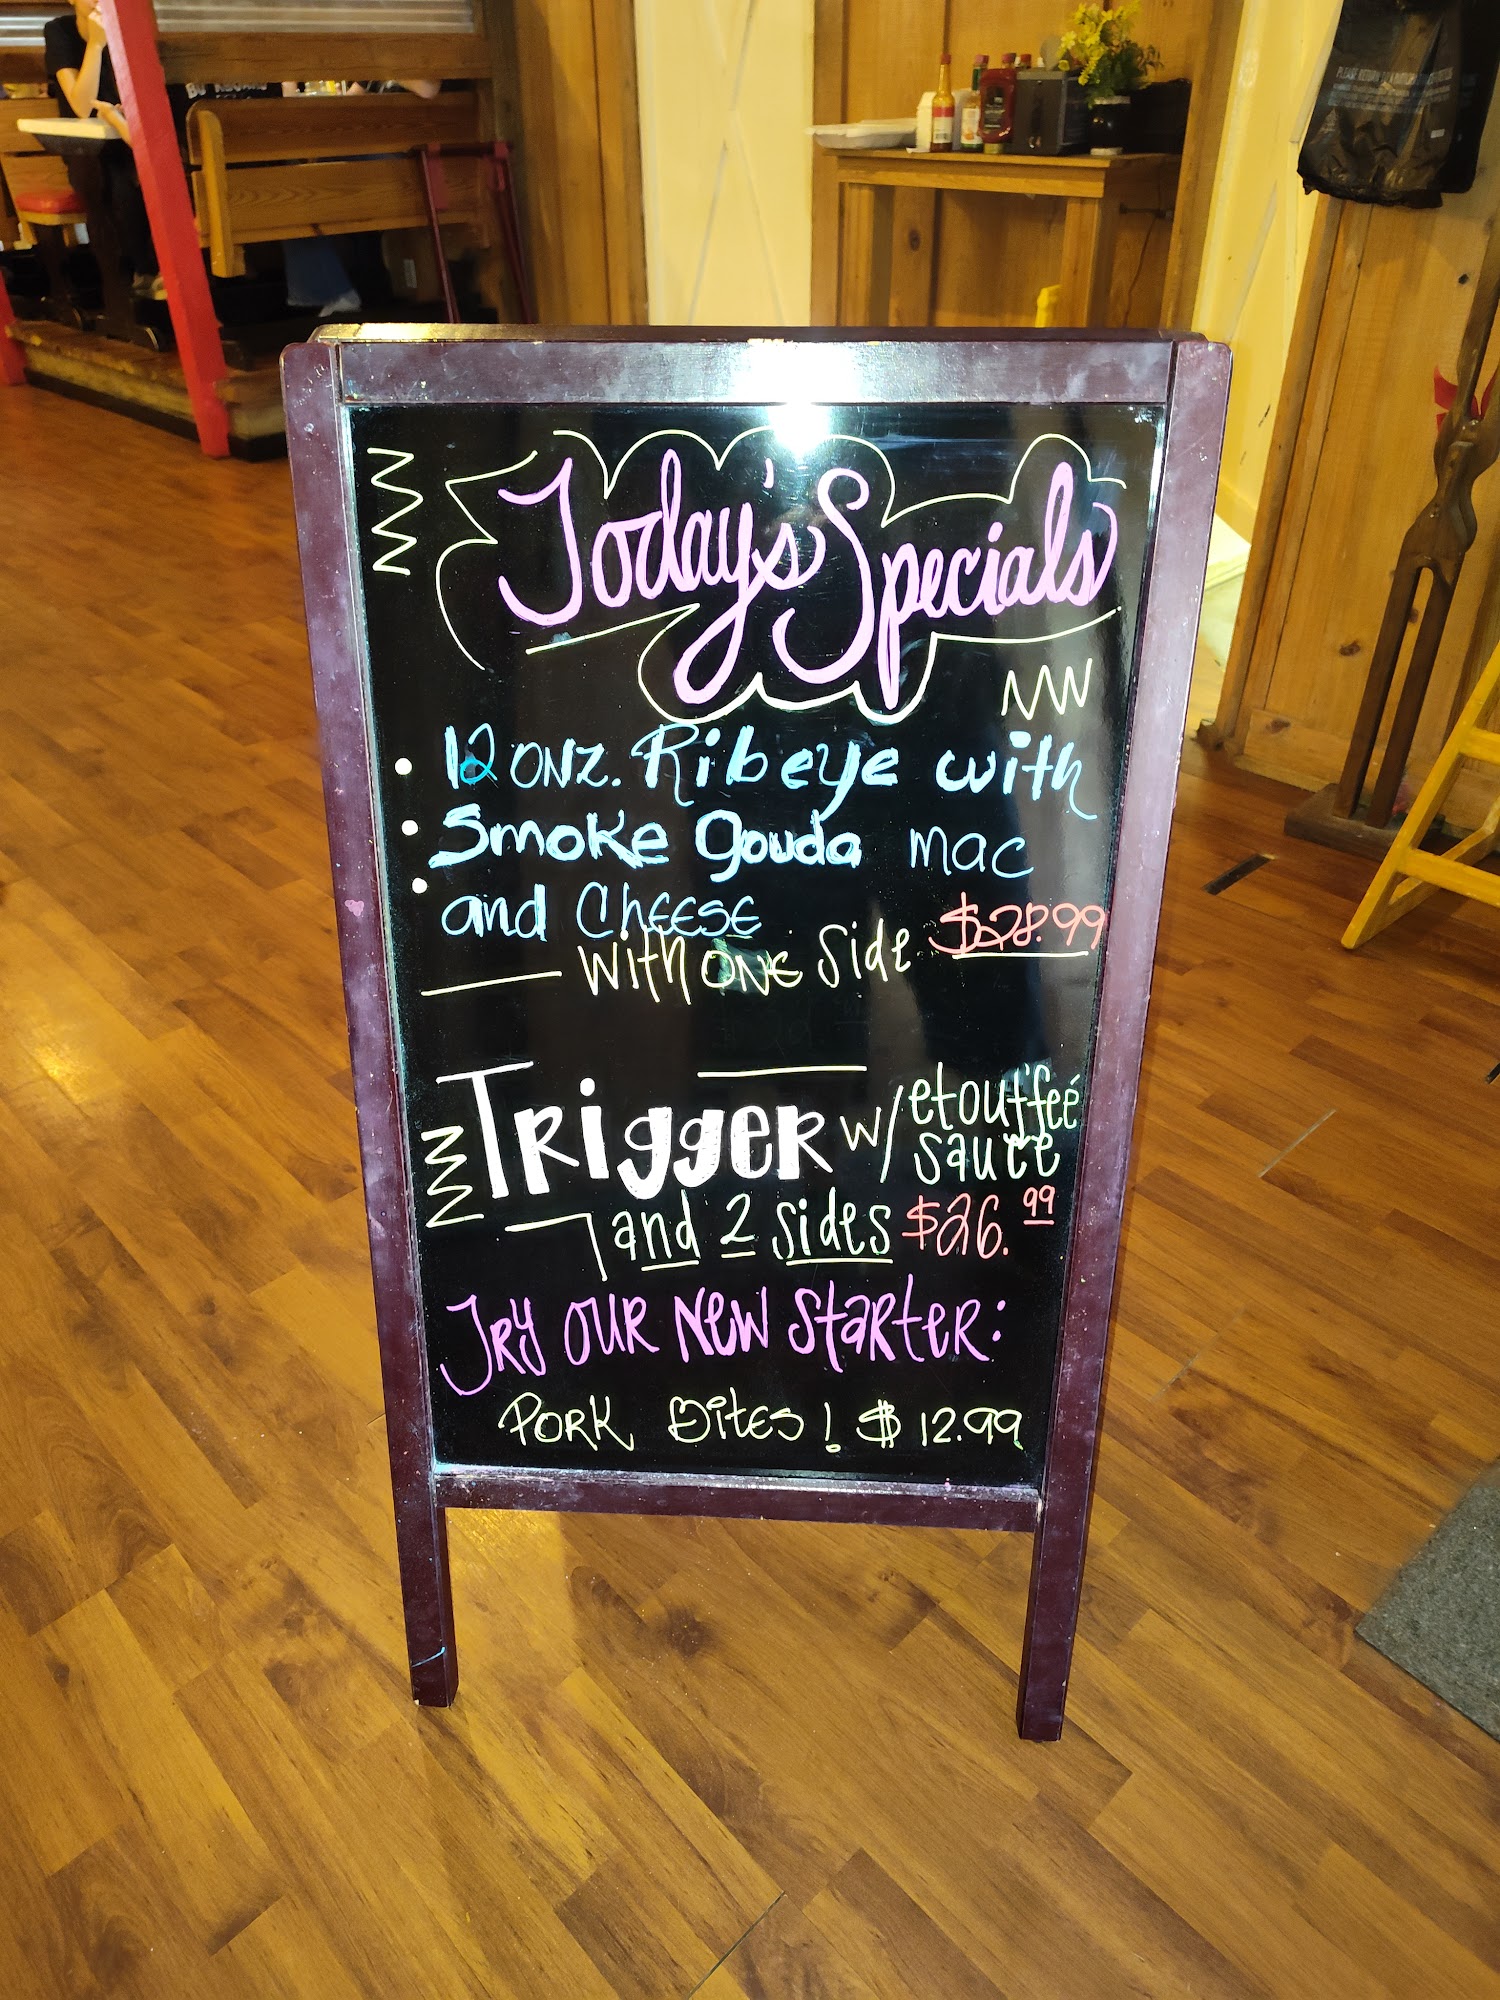 Today's Specials
12 ONZ. Ribeye with
Smoke gouda mac
and CHEESE
with ONE Side $28.99
TRiggeR w/ etouf'feé
sauce
and 2 sides $26.99
TRY OUR New StaRteR:
PORK Bites! $12.99